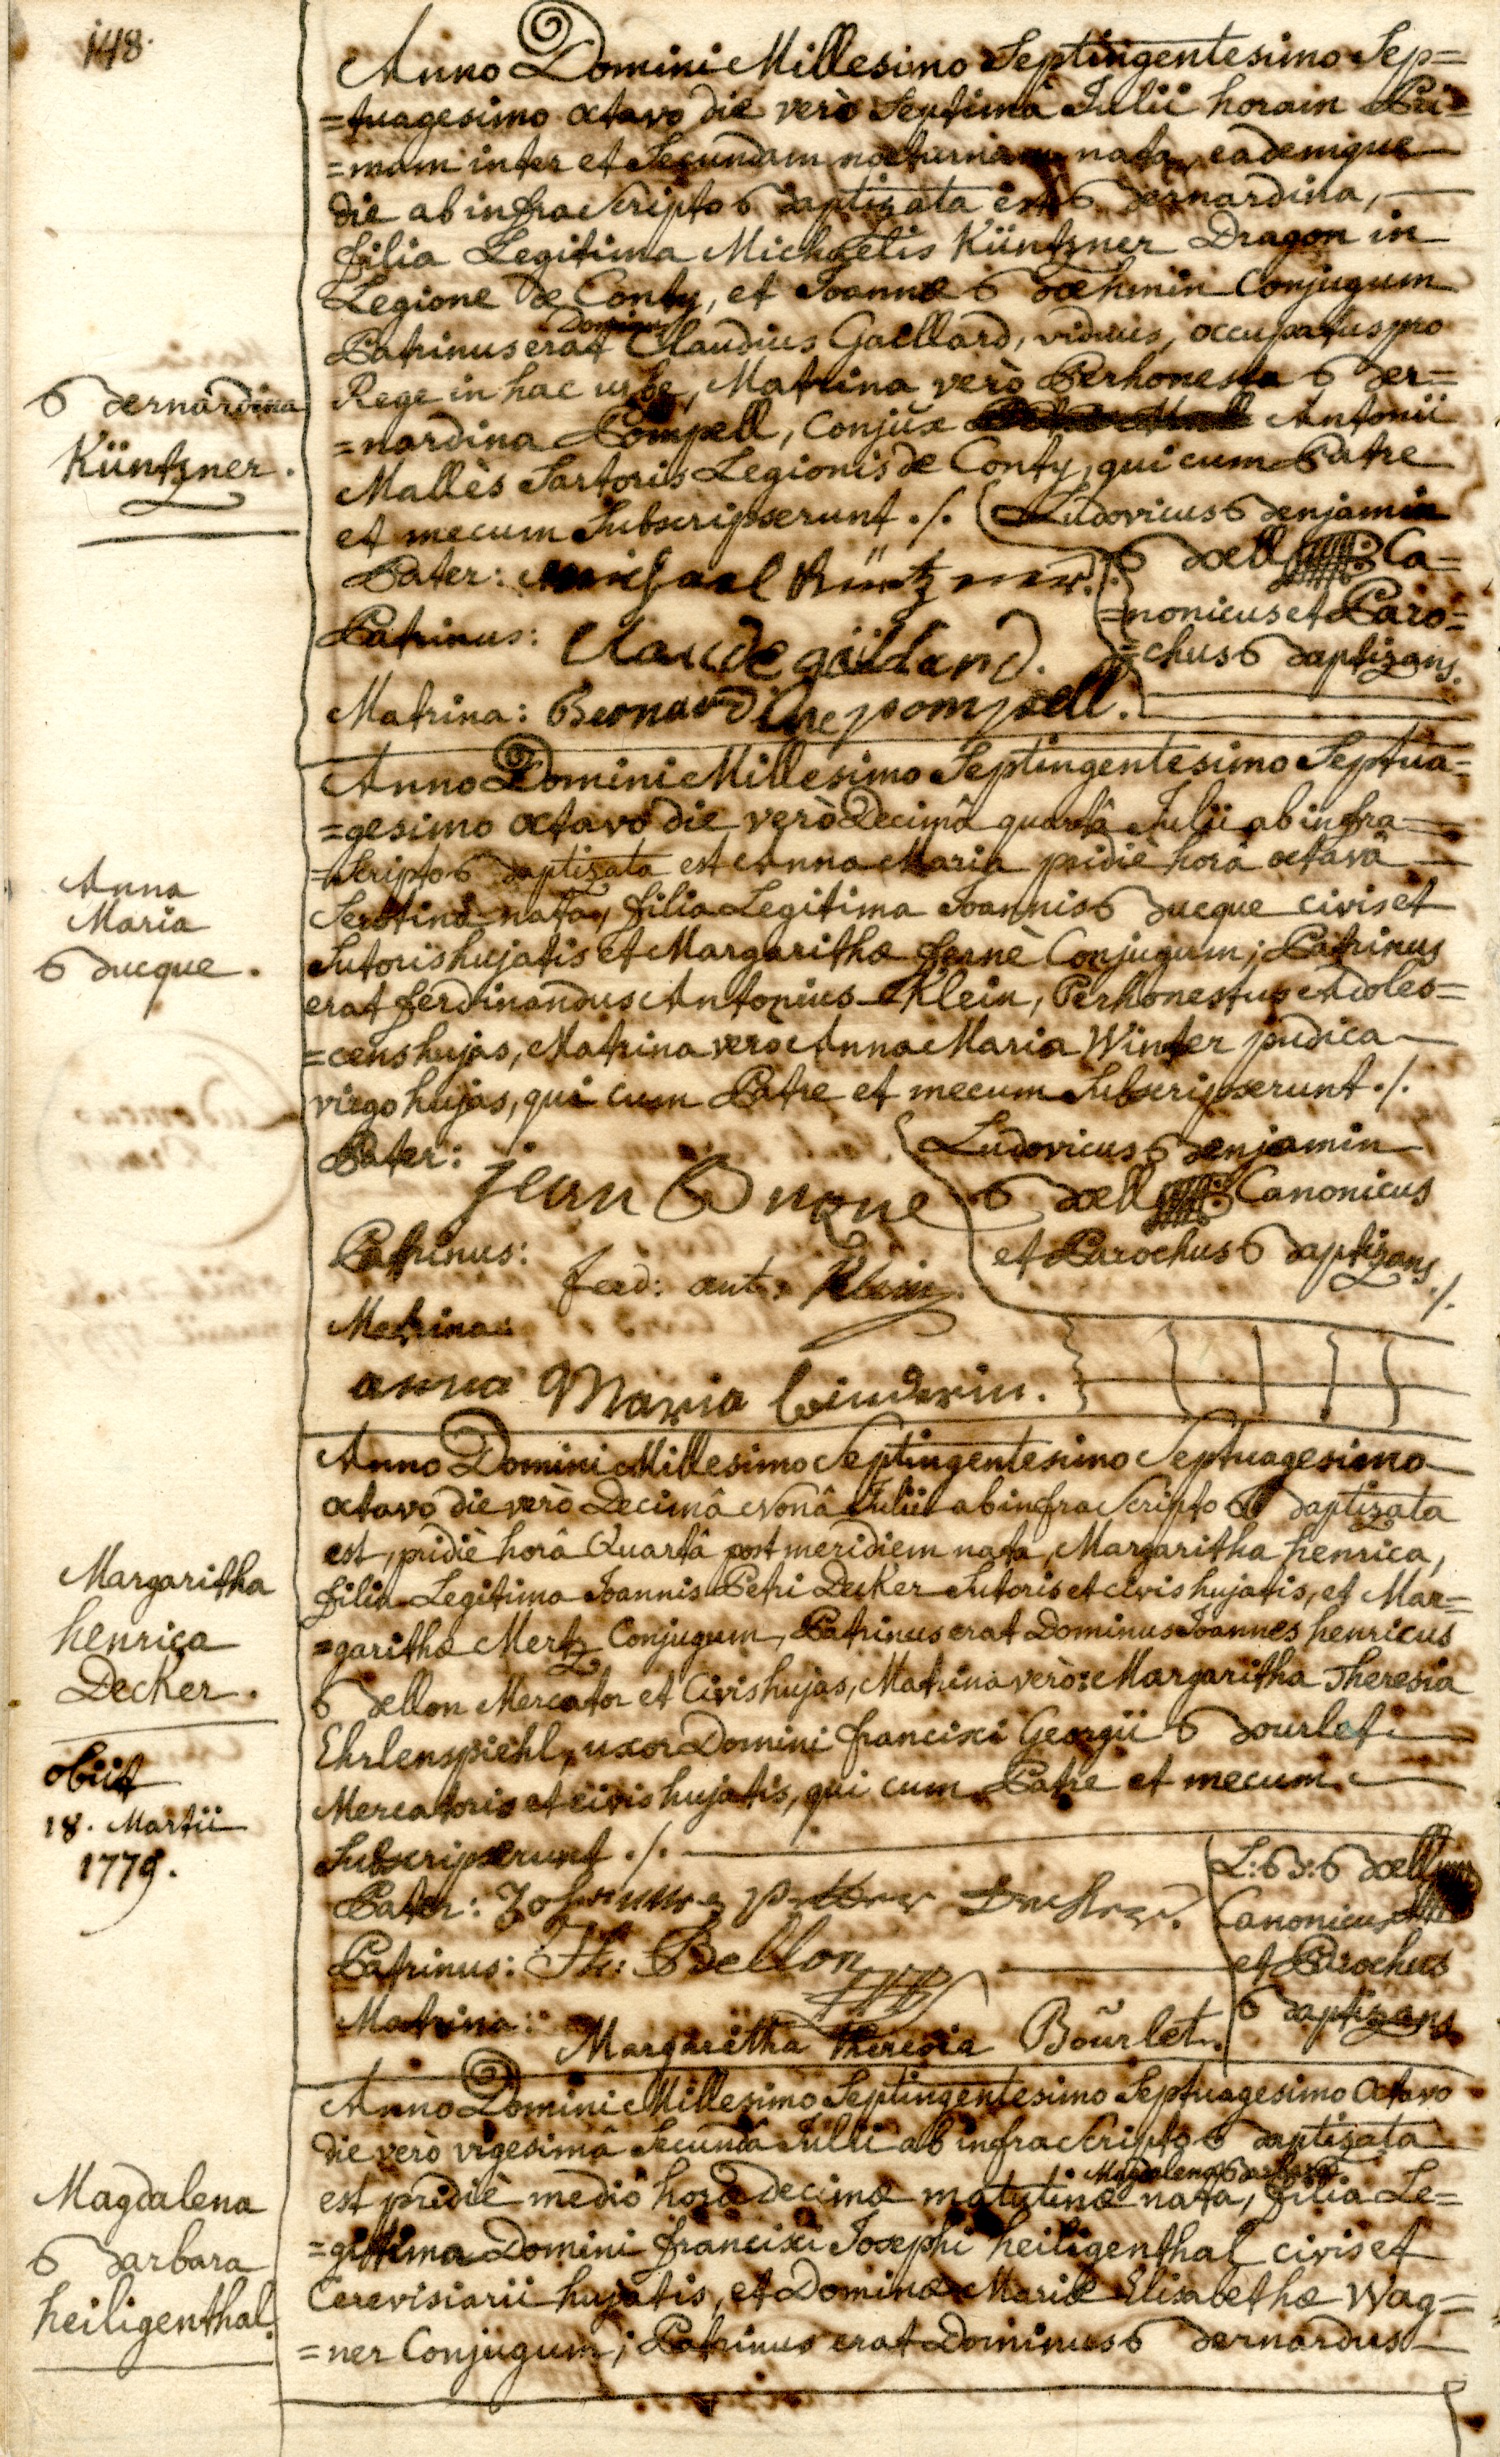 148.
Anno Domini Millesimo Septingentesimo Sep=
=tuagesimo octavo die verò Septimâ Julii horam Pri=
=mam inter et Secundam nocturnam nata, eademque
die ab infra Scripto Baptizata est Bernardina,
filia Legitima Michaelis Küntzner Dragon in
Legione de Conty, et Joannæ Bœhmin Conjugum
Patrinus erat Dominus Claudius Gaillard, viduus, occupatus pro
Rege in hac urbe, Matrina verò Perhonesta Ber=
=nardina Pompell, Conjux Antonii
Mallès Sartoris Legionis de Conty, qui cum Patre
et mecum Subscripserunt ./. Ludovicus Benjamin
Bœll Ca=
=nonicus et Paro=
=chus Baptizans.
Bernardina
Küntzner.
Pater: Michael Küntzner.
Patrinus: Claude gaillard.
Matrina: Bernardine pompell.
Anno Domini Millesimo Septingentesimo Septua=
=gesimo octavo die verò Decimâ quartâ Julii ab infra
=Scripto Baptizata est Anna Maria pridiè horâ octavâ
Serotinâ nata, filia Legitima Joannis Bucque civis et
Sutoris hujatis et Margarithæ fernè Conjugum; Patrinus
erat ferdinandus Antonius Klein, Perhonestus Adoles=
=cens hujas, Matrina verò Anna Maria Winter pudica
virgo hujas, qui cum Patre et mecum Subscripserunt ./.
Anna
Maria
Bucque.
Pater: jean Buque
Ludovicus Benjamin
Bœll Canonicus
et Parochus Baptizans ./.
Patrinus: ferd: ant: Klein.
Matrina:
anna Maria Winderin.
Anno Domini Millesimo Septingentesimo Septuagesimo
octavo die verò Decimâ Nonâ Julii ab infra Scripto Baptizata
est, pridiè horâ Quartâ post meridiem nata, Margaritha henrica,
filia Legitima Joannis Petri Decker Sutoris et civis hujatis, et Mar=
=garithæ Mertz Conjugum, Patrinus erat Dominus Joannes henricus
Bellon Mercator et Civis hujas, Matrina verò: Margaritha Theresia
Ehrlenspiehl, uxor Domini francisci Georgii Bourlet
Mercatoris et civis hujatis, qui cum Patre et mecum
Subscripserunt ./.
Margaritha
henrica
Decker.
obiit
18. Martii
1779.
L: B: Bœll
Canonicus
et Parochus
Baptizans
Pater: Johannes petter Decker.
Patrinus: Bellon
Matrina: Margaretha Theresia Bourlet.
Anno Domini Millesimo Septingentesimo Septuagesimo Octavo
die verò vigesimâ Secundâ Julii ab infra Scripto Baptizata
est pridiè mediô horæ Decimæ matutinæ nata, Magdalena Barbara filia Le=
=gitima Domini francisci Josephi heiligenthal civis et
Cerevisiarii hujatis, et Dominæ Mariæ Elisabethæ Wag=
=ner Conjugum; Patrinus erat Dominus Bernardus
Magdalena
Barbara
heiligenthal.